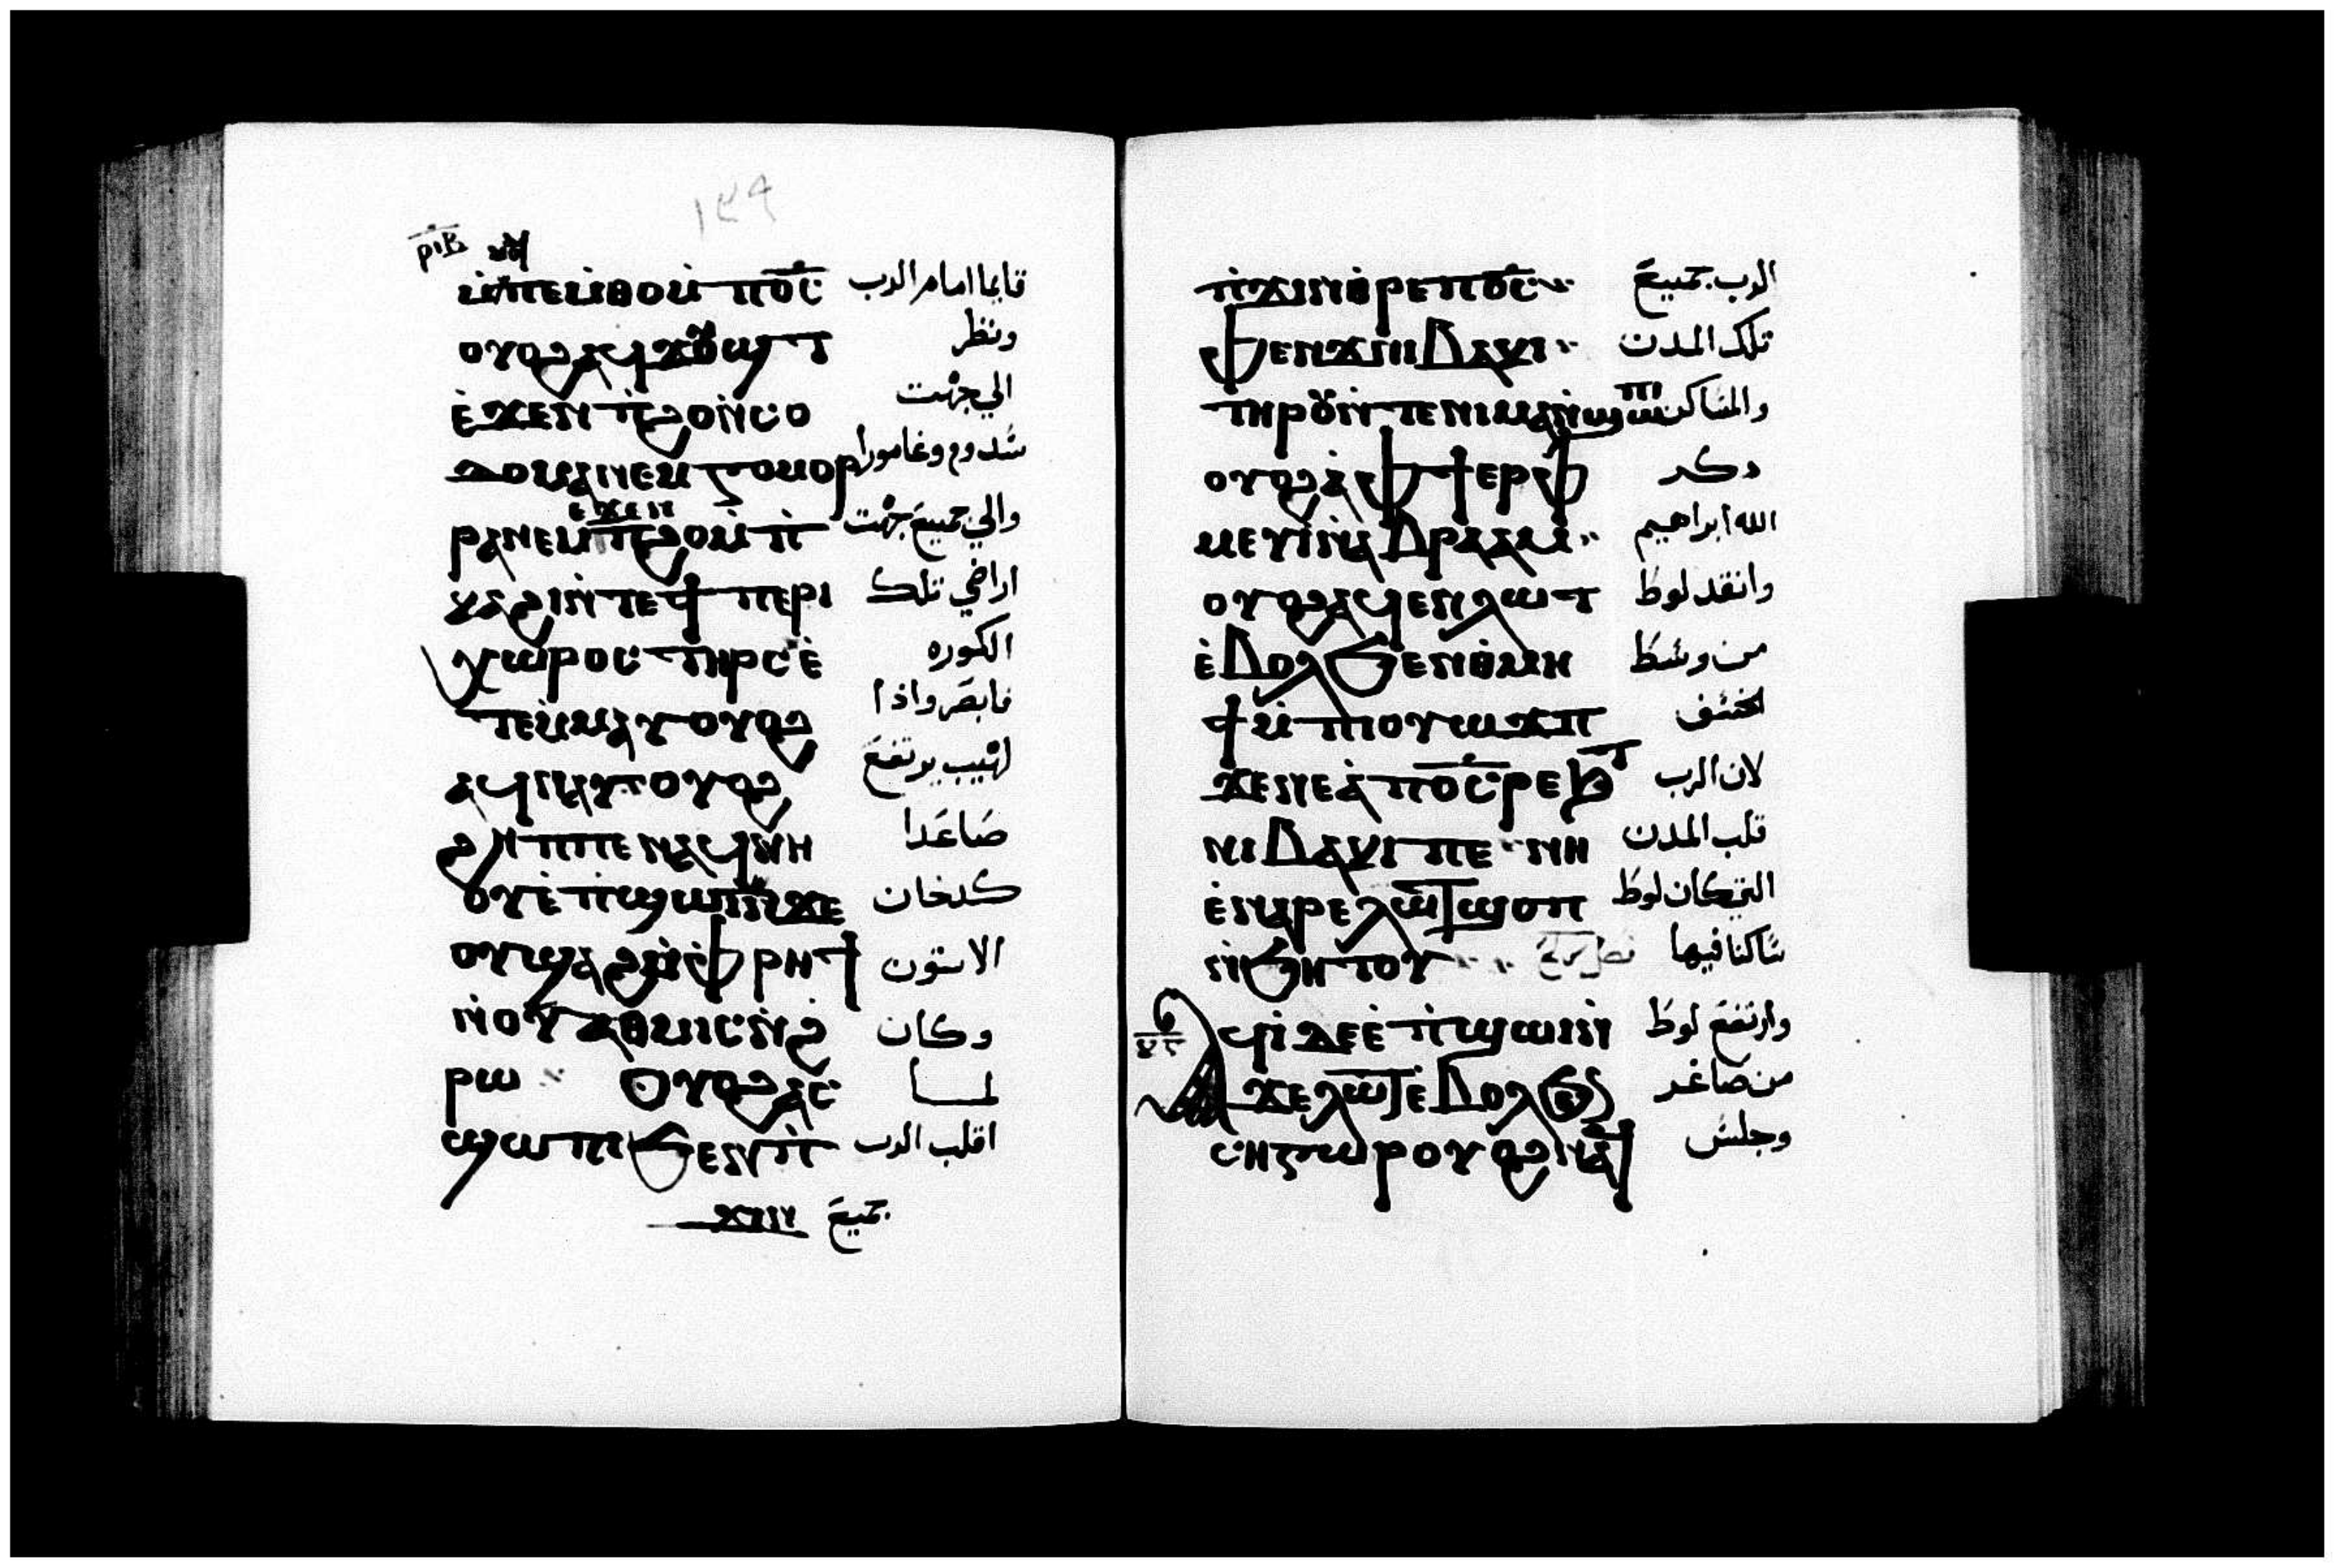 ١٤٩
ⲣⲓⲃ
ⲙ̀ⲡⲉⲙ̀ⲑⲟⲙ̀ ⲡⲟ̅ⲥ̅ قايما امام الرب
ⲟⲩⲟϩ ⲁϥϫⲟⲩϣⲧ ونظر
ⲉ̀ϫⲉⲛ ⲡ̀ϩⲟ ⲛ̀ⲥⲟ الي جهت
ⲇⲟⲙⲁ ⲛⲉⲙ ⲅⲟⲙⲟⲣ سدوم وغامورا
ⲉϫⲉⲛ
ⲣⲁ ⲛⲉⲙ ⲡ̀ϩⲟ ⲙ̀ⲡ̀ والي جميع جهت
ⲕⲁϩⲓ ⲛ̀ⲧⲉ ϯⲡⲉⲣⲓ اراضي تلك
ⲭⲱⲣⲟⲥ ⲧⲏⲣⲥ ⲉ̀ الكوره
ⲧⲉⲙ̀ⲙⲁⲩ ⲟⲩⲟϩ فابصر واذا
ⲁϥⲛⲁⲩ ⲟⲩⲟϩ لهيب يرتفع
ϩⲏⲡⲡⲉ ⲛⲁϥⲛⲏ صاعدا
ⲟⲩ ⲉ̀ⲡ̀ϣⲱⲓ ⲛ̀ϫⲉ كدخان
ⲟⲩϣⲁϩ ⲙ̀ⲫⲣⲏϯ الاتون
ⲛ̀ⲟⲩⲁⲑⲙⲓⲥ ⲛ̀ϩ وكان
ⲣⲱ ⲟⲩⲟϩ ⲁⲥ لما
ϣⲱⲡⲓ ϧⲉⲛ ⲡ̀ اقلب الرب
ϫⲓⲛ جميع
ⲡ̀ϫⲓⲛⲑⲣⲉ ⲡⲟ̅ⲥ̅ الرب جميع
ϥⲉⲛϫ ⲛⲓⲃⲁⲕⲓ تلك المدن
ⲧⲏⲣⲟⲩ ⲛ̀ⲧⲉ ⲛⲓⲙⲁⲛ̀ϣⲱⲡⲓ والمساكن
ⲟⲩⲟϩ ⲁ̀ ⲫϯ ⲉⲣⲫ ذكر
ⲙⲉⲩⲓ ⲛ̀ⲁⲃⲣⲁⲁⲙ الله ابراهيم
ⲟⲩⲟϩ ⲁϥⲉⲛ ⲗⲱⲧ وانقد لوط
ⲉ̀ⲃⲟⲗ ϧⲉⲛ ⲑⲙⲏ من وسط
ϯ ⲙ̀ⲡⲓⲟⲩⲱϫⲡ الخسف
ϫⲉ ⲛⲉⲁ̀ ⲡⲟ̅ⲥ̅ ⲣⲉϧⲧ لان الرب
ⲛⲓⲃⲁⲕⲓ ⲡⲉ ⲛⲏ قلب المدن
ⲉ̀ⲛⲁⲣⲉ ⲗⲱⲧ ϣⲟⲡ التي كان لوط
ⲛ̀ϧⲏⲧⲟⲩ ساكنا فيها
ϥⲓ̀ ⲇⲉ ⲉ̀ⲡ̀ϣⲱⲓ ⲛ̀ وارتفع لوط
ϫⲉ ⲗⲱⲧ ⲉ̀ⲃⲟⲗ ϧⲉⲛ من صاغر
ⲥⲏⲅⲱⲣ ⲟⲩⲟϩ ⲛⲁϥ وجلس